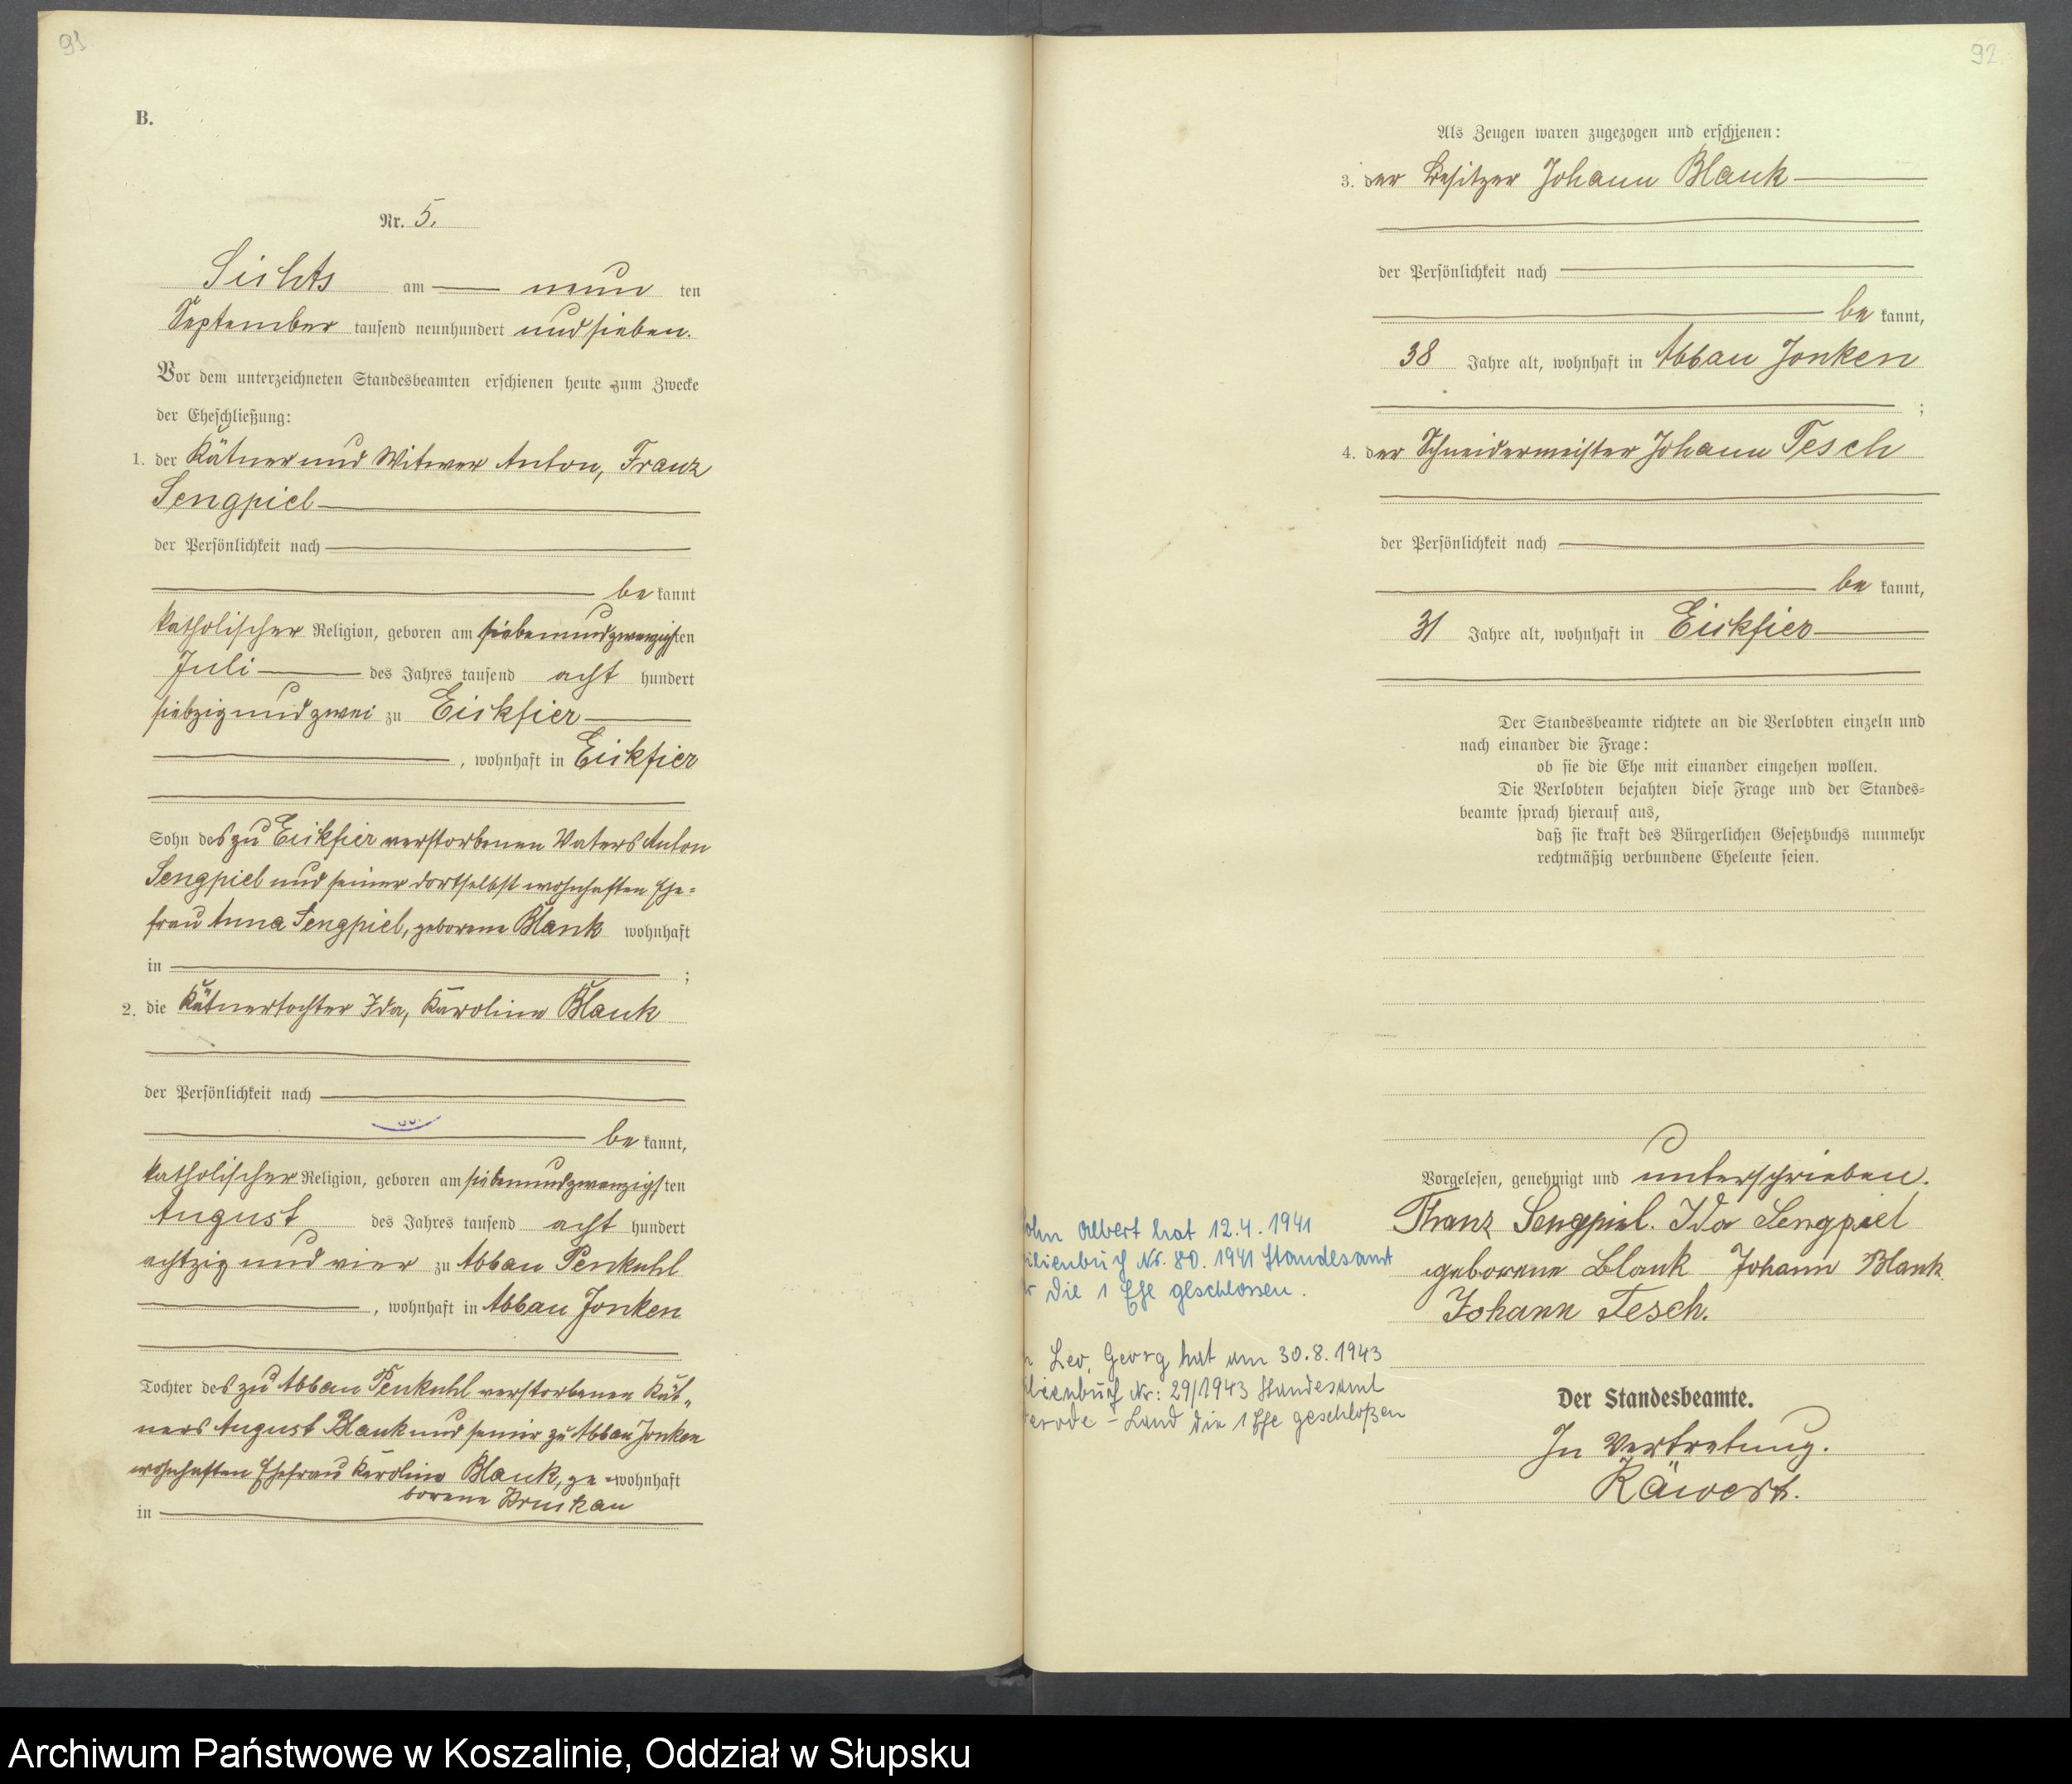 91
B.
Nr. 5.
Sichts am neun ten
September tausend neunhundert und sieben.
Vor dem unterzeichneten Standesbeamten erschienen heute zum Zwecke
der Eheschließung:
1. der Kätner und Witwer Anton, Franz
Sengpiel
der Persönlichkeit nach
be kannt
katholischer Religion, geboren am siebenundzwanzigsten
Juli des Jahres tausend acht hundert
siebzig und zwei zu Eickfier
, wohnhaft in Eickfier
Sohn des zu Eickfier verstorbenen Vaters Anton
Sengpiel und seiner dortselbst wohnhaften Ehe=
frau Anna Sengpiel, geborene Blank wohnhaft
in ;
2. die Kätnertochter Ida, Karoline Blank
der Persönlichkeit nach
be kannt,
katholischer Religion, geboren am siebenundzwanzigsten
August des Jahres tausend acht hundert
achtzig und vier zu Abbau Penkuhl
, wohnhaft in Abbau Jonken
Tochter des zu Abbau Penkuhl verstorbenen Kät„
ners August Blank und seiner zu Abbau Jonken
wohnhaften Ehefrau Karoline Blank, ge= wohnhaft
borene
in
92.
Als Zeugen waren zugezogen und erschienen:
3. der Besitzer Johann Blank
der Persönlichkeit nach
be kannt,
38 Jahre alt, wohnhaft in Abbau Jonken
;
4. der Schneidermeister Johann Tesch
der Persönlichkeit nach
be kannt,
31 Jahre alt, wohnhaft in Eickfier
Der Standesbeamte richtete an die Verlobten einzeln und
nach einander die Frage:
ob sie die Ehe mit einander eingehen wollen.
Die Verlobten bejahten diese Frage und der Standes=
beamte sprach hierauf aus,
daß sie kraft des Bürgerlichen Gesetzbuchs nunmehr
rechtmäßig verbundene Eheleute seien.
Vorgelesen, genehmigt und unterschrieben.
Franz Sengpiel. Ida Sengpiel
geborene Blank Johann Blank
Johann Tesch.
ohn Albert hat 12.4.1941
ilienbuch Nr. 80. 1941 Standesamt
die 1 Ehe geschlossen.
Leo, Georg hat am 30.8.1943
lienbuch Nr: 29/1943 Standesamt
erode - Land die 1 Ehe geschloßen
Der Standesbeamte.
In Vertretung.
Käwert.
Archiwum Państwowe w Koszalinie, Oddział w Słupsku